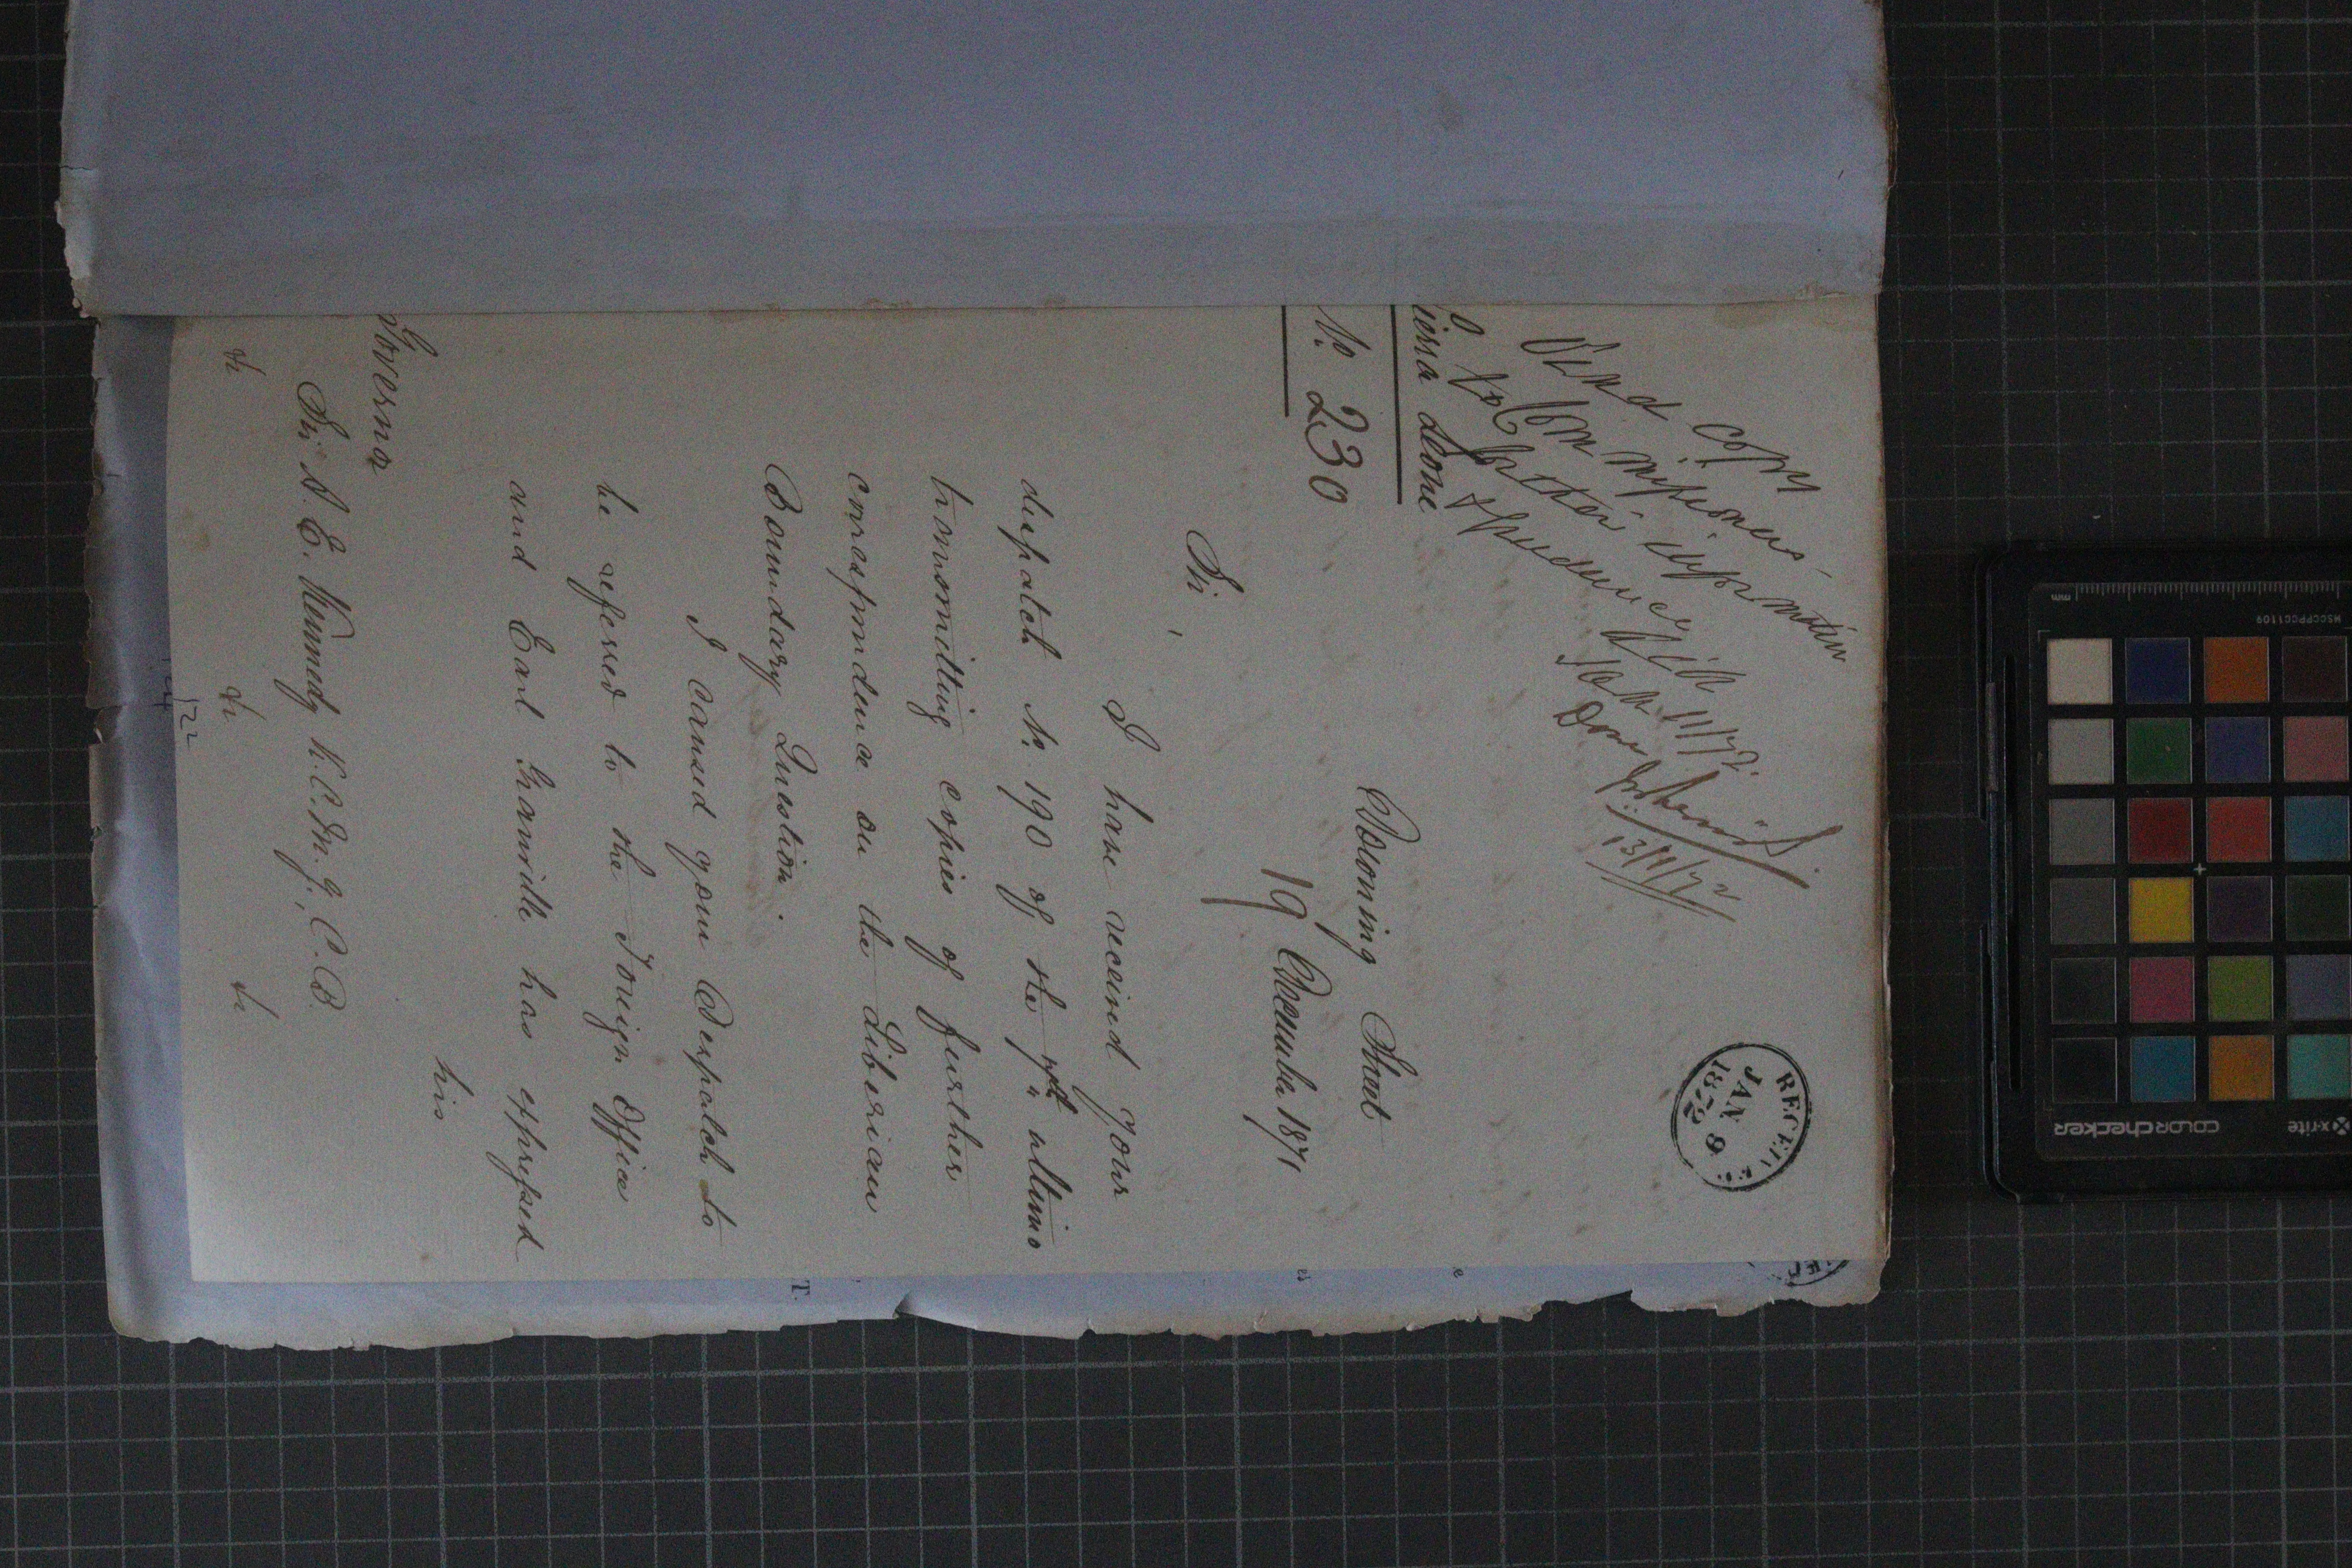 Send copy
to Commissioners
for their information
& guidance
Done
13/1/72
RECEIVED
JAN 9
1872
ierra Leone
No 230
Downing Street
19 December 1871
Sir,
I have received your
despatch No. 190 of the ultimo
transmitting copies of further
correspondence on the Liberian
Boundary Question.
I caused your Despatch to
be referred to the Foreign Office
and Earl Granville has expressed
his
Governor
Sir A. E. Kennedy K.C.M.G., C.B.
&c &c &c
T.
x-rite
colorchecker
MSCCPPCC1109
mm